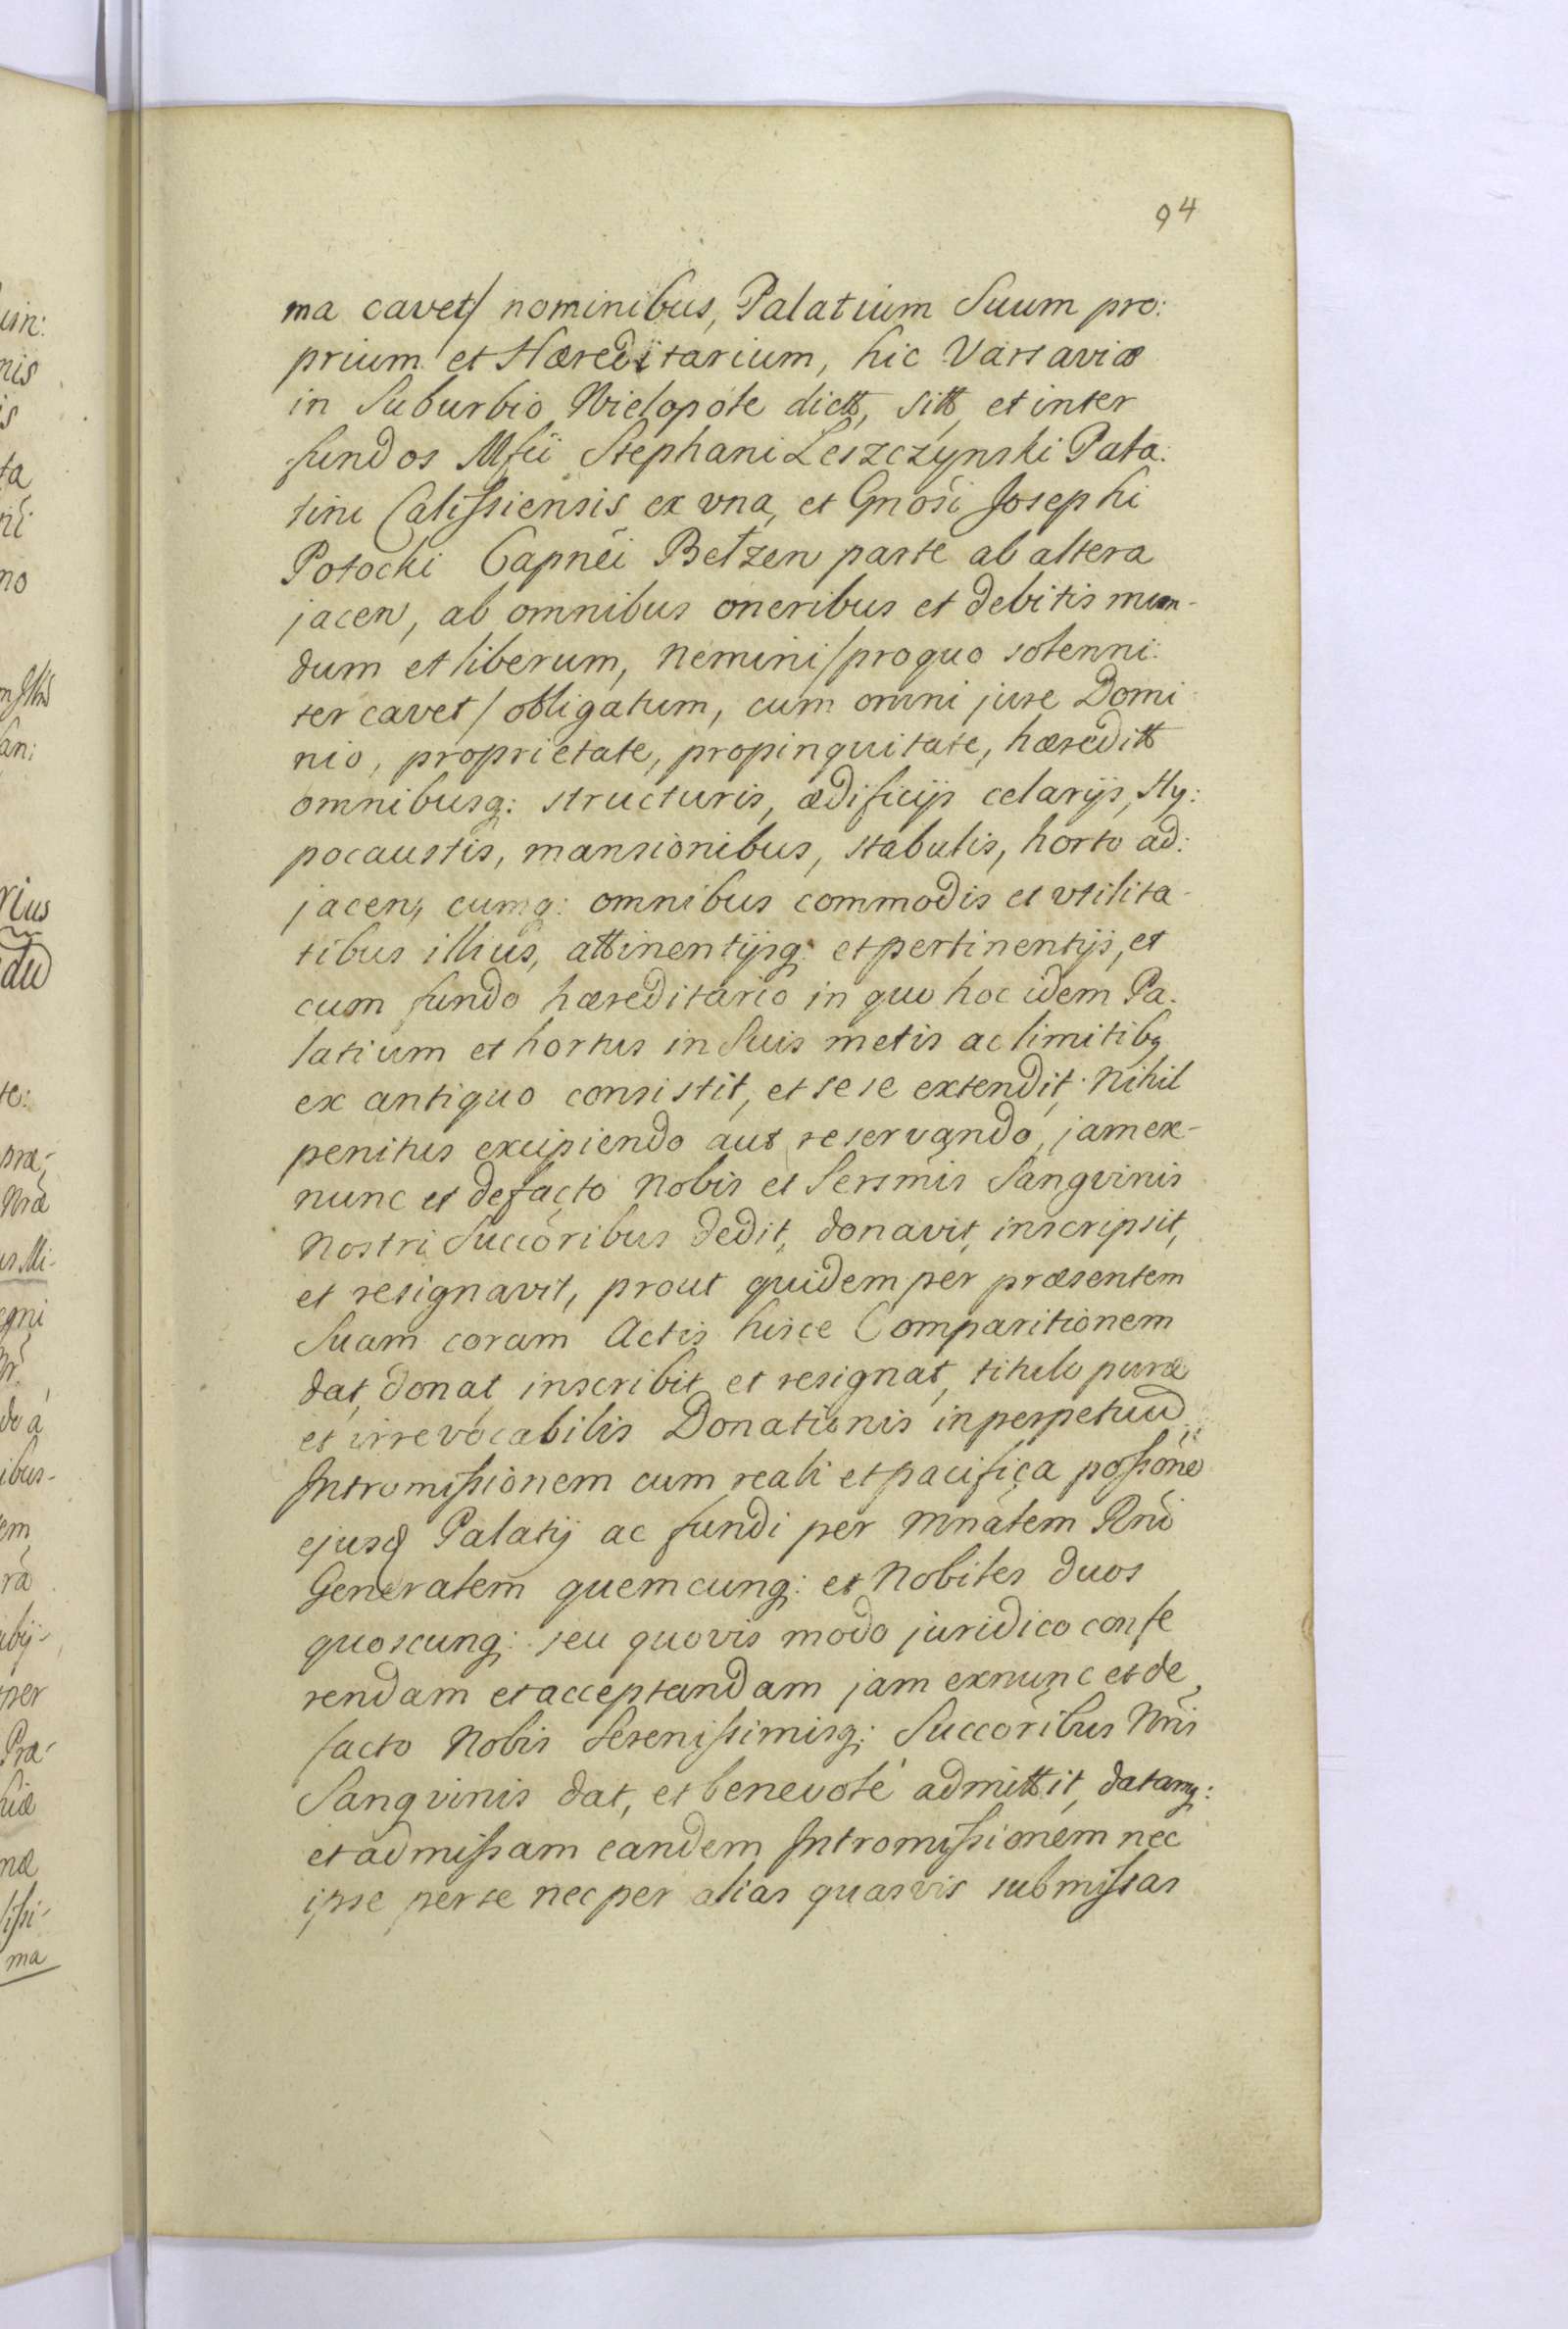 94
ma cavet/ nominibus, Palatium Suum pro:
prium et Hæreditarium, hic Varsaviæ
in Suburbio Wielopole dictt, sitt, et inter
fundos Mfci Stephani Leszczynski Pala:
tini Calissiensis ex vna, et Gnosi Josephi
Potocki Capnei Belzen parte ab altera
jacen, ab omnibus oneribus et debitis mun-
dum et liberum, nemini /pro quo solenni:
ter cavet/ obligatum, cum omni jure Domi
nio, proprietate, propinquitate, hæreditt
omnibusq: structuris, ædificijs celarijs, Hy:
pocaustis, mansionibus, stabulis, horto ad:
jacen, cumq: omnibus commodis et vtilita-
tibus illius, attinentijsq: et pertinentijs, et
cum fundo hæreditario in quo hoc idem Pa-
latium et hortus in Suis metis ac limitibq
ex antiquo consistit, et sese extendit. Nihil
penitus excipiendo aut reservando, jam ex-
nunc et defacto Nobis et Sersmis Sangvinis
Nostri Succoribus dedit, donavit, inscripsit,
et resignavit, prout quidem per præsentem
Suam coram Actis hisce Comparitionem
dat, donat, inscribit et resignat, titulo puræ
et irrevocabilis Donationis in perpetuu
Intromissionem cum reali et pacifica possone
ejusd Palatij ac fundi per Mnatem Rni
Generalem quemcunq: et Nobiles duos
quoscunq: seu quovis modo juridico confe
rendam et acceptandam jam exnunc et de
facto Nobis Serenissimisq: Succoribus Nris
Sangvinis dat, et benevole admittit, datamq:
et admissam eandem Intromissionem nec
ipse per se nec per alias quasvis submissas